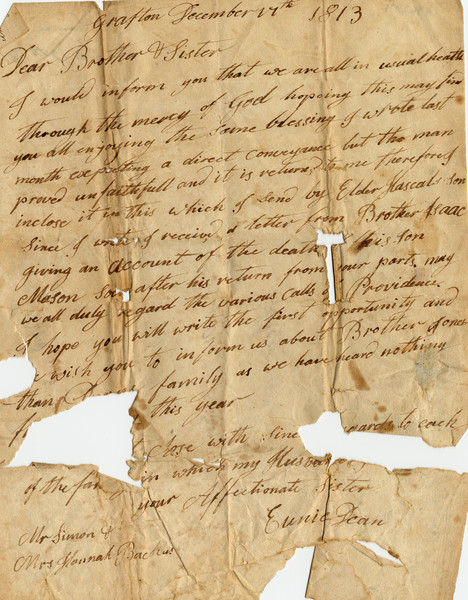 Grafton December 17th 1813
Dear Brother & Sister
I would inform you that we are all in usual health
through the mercy of God hopeing this may find
you all enjoying the same blessing I wrote last
month expecting a direct conveyance but the man
proved unfaithfull and it is returned to me therefore I
inclose it in this which I send by Elder Rascals son
Since I wrote I received a letter from Brother Isaac
giving an account of the death his son
Mason soon after his return from our parts may
we all duly regard the various calls of Providence.
I hope you will write the first opportunity and
we wish you to inform us about Brother Jones
family as we have heard nothing
this year
Close with regards to each
of the in which my Husband
your Affectionate Sister
Eunic Dean
Mr Simon &
Mrs Hannah Backus